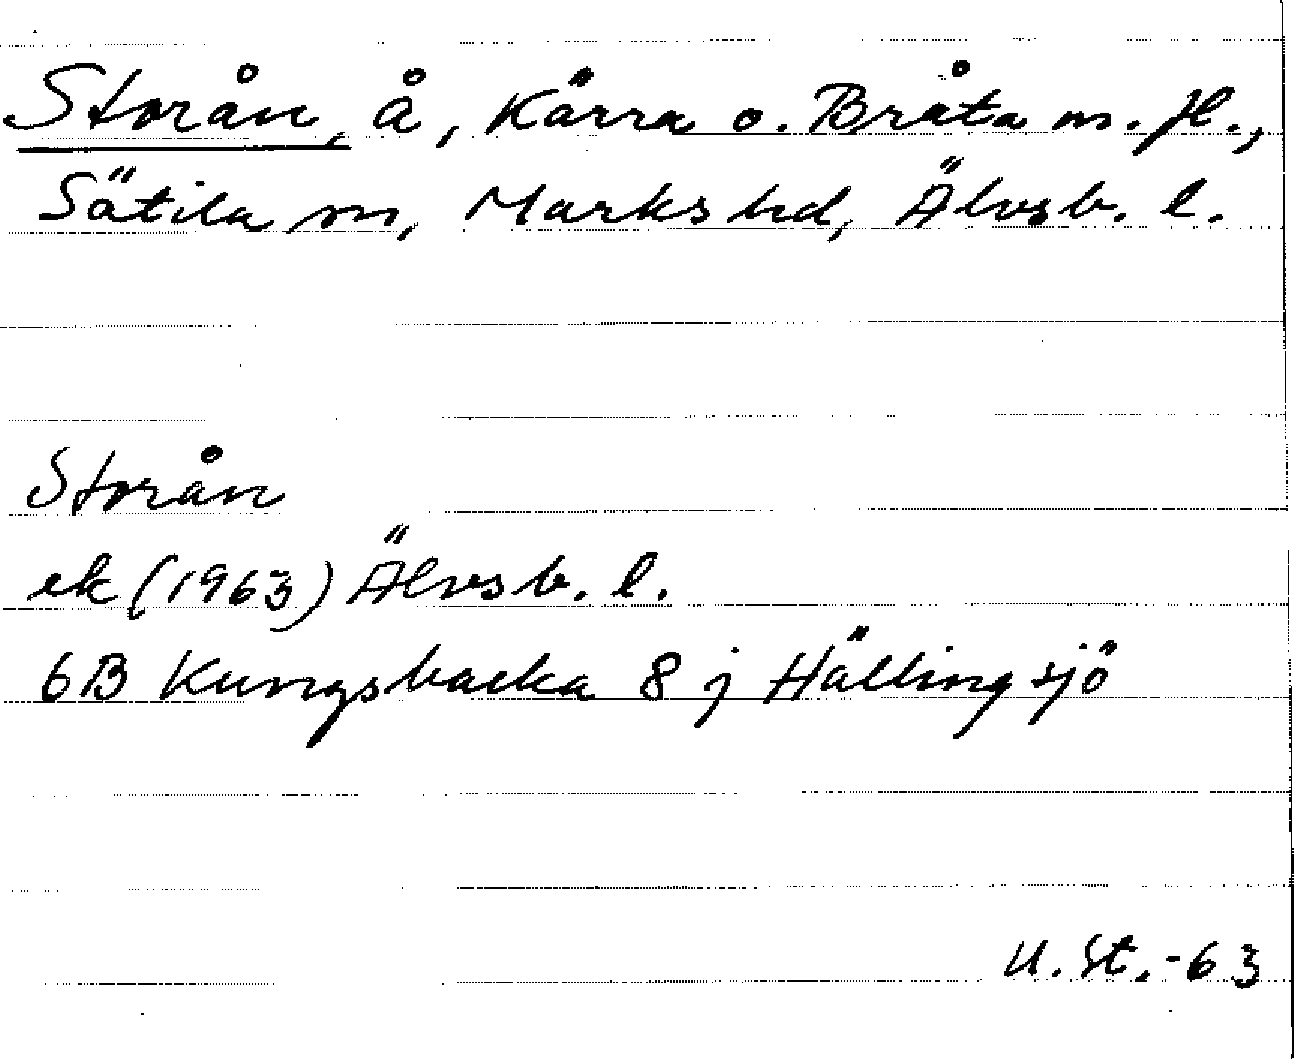 Storån, å, Kärra o. Bråta m. fl.,
Sätila sn, Marks hd, Älvsb. l.
Storån
ek (1963) Älvsb. l.
6B Kungsbacka 8 j Hällingsjö
U. St. -63